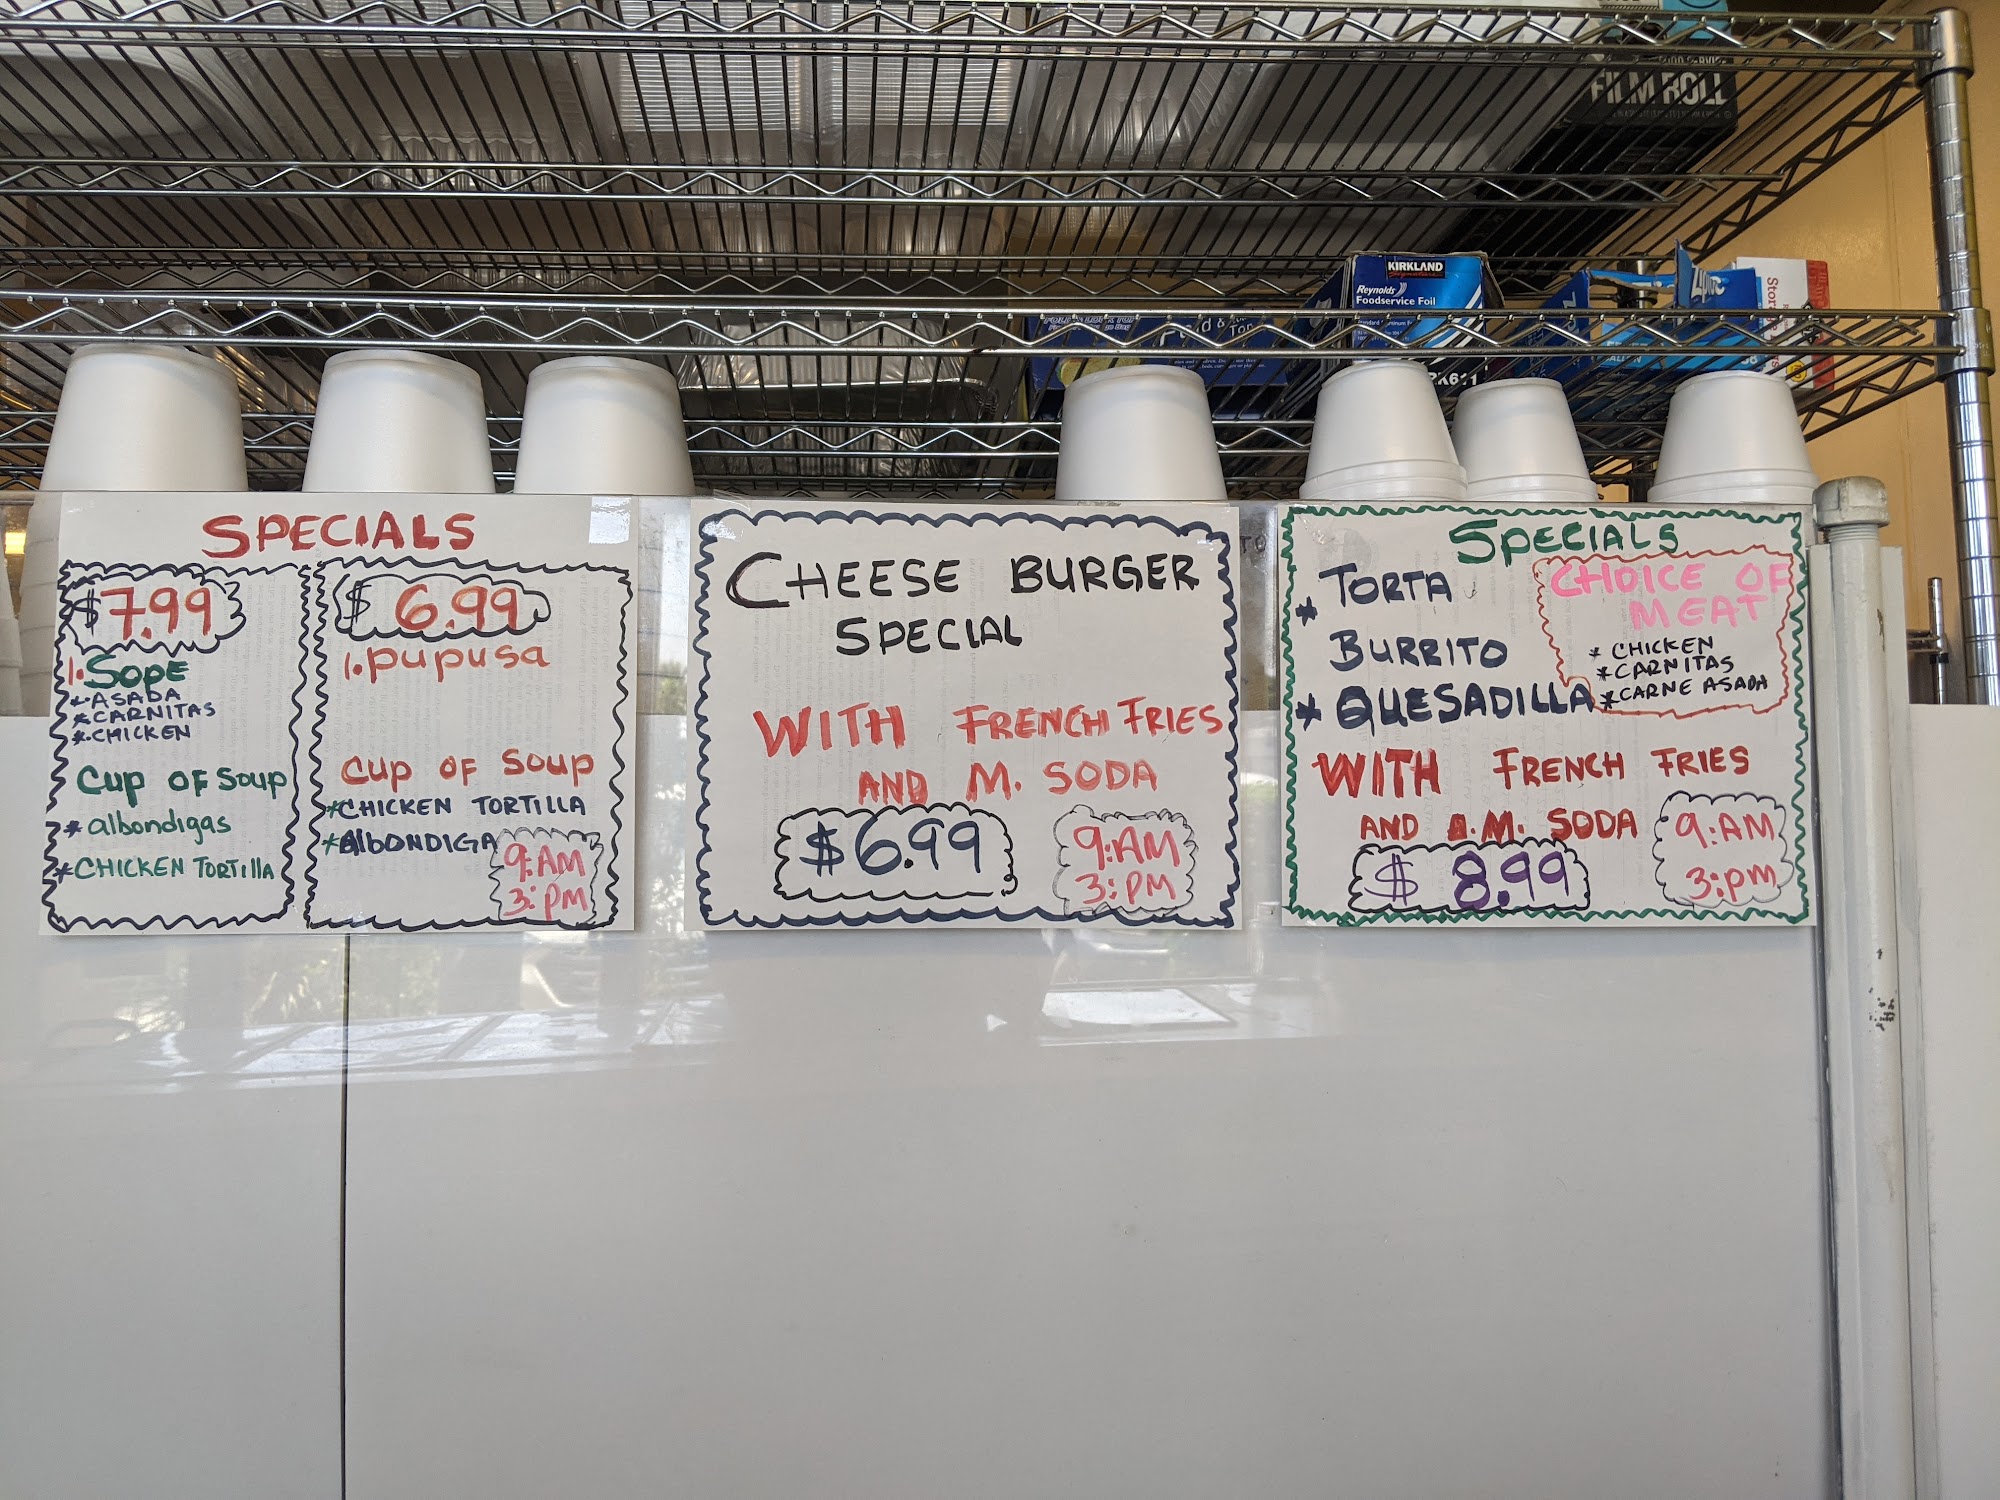 FILM ROLL
KIRKLAND
Signature
Reynolds
Foodservice Foil
SPECIALS
$7.99
1. SOPE
*.ASADA
*CARNITAS
*.CHICKEN
CUP OF SOUP
* albondigas
*CHICKEN TORTILLA
$ 6.99
1. pupusa
CUP OF SOUP
*CHICKEN TORTILLA
*AlBONDIGA
9:AM
3:PM
CHEESE BURGER
SPECIAL
WITH FRENCH FRIES
AND M. SODA
$6.99
9:AM
3:PM
SPECIALS
* TORTA
BURRITO
* QUESADILLA
CHOICE OF
MEAT
* CHICKEN
*CARNITAS
*CARNE ASADA
WITH FRENCH FRIES
AND M. SODA
$ 8.99
9:AM
3:pm